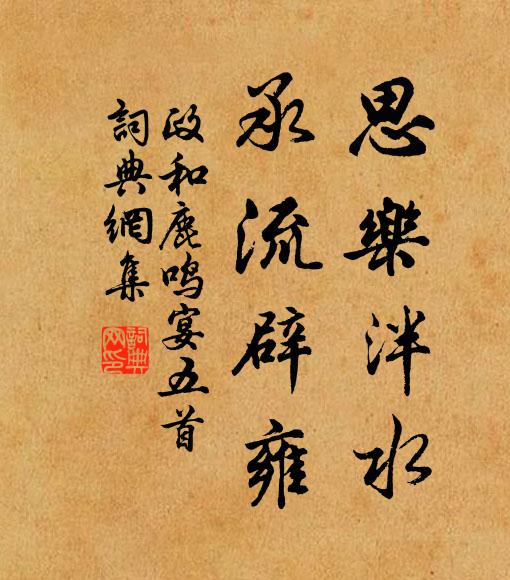 思樂泮水
承流辟雍
政和鹿鳴宴五首
詞典網集
詞典
网印